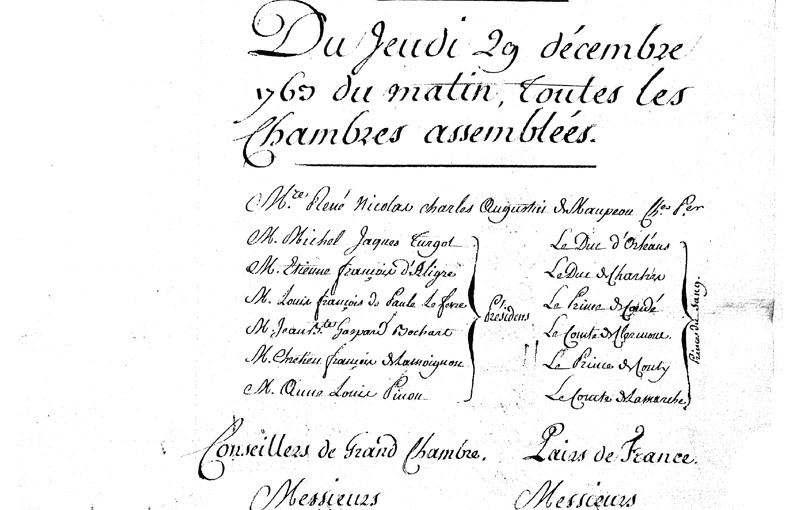 Du Jeudi 29 décembre
1763 du matin, toutes les
Chambres assemblées.
M.re René Nicolas charles Augustin de Maupeou Ch.er P.er
M. Michel Jaques Turgot
M. Etienne françois d'Aligre
M. Louis françois de Paule Le fevre
M. Jean B.te Gaspard Bochart
M. Chretien françois de Lamoignon
M. Anne Louis Pinon
P.s
Présidens
Le Duc d'Orléans
Le Duc de Chartres
Le Prince de Condé
Le Comte de Clermont
Le Prince de Conty
Le Comte de Lamarche
Princes du sang.
Conseillers de Grand Chambre.
Pairs de France.
Messieurs
Messieurs